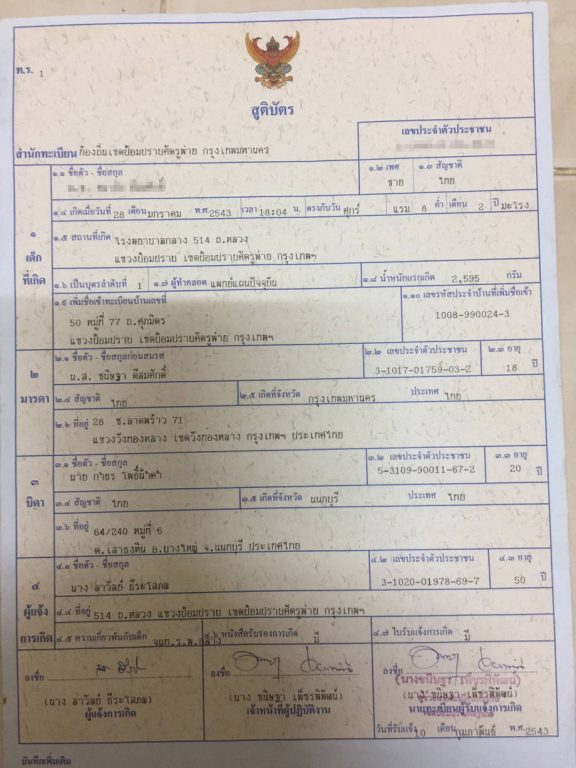 ท.ร. 1
สูติบัตร
เลขประจำตัวประชาชน
สำนักทะเบียน ท้องถิ่นเขตป้อมปราบศัตรูพ่าย กรุงเทพมหานคร
๑ เด็กที่เกิด
๑.๑ ชื่อตัว - ชื่อสกุล
๑.๒ เพศ ชาย
๑.๓ สัญชาติ ไทย
๑.๔ เกิดเมื่อวันที่ 28 เดือน มกราคม พ.ศ. 2543 เวลา 18:04 น. ตรงกับวัน ศุกร์ แรม 8 ค่ำ เดือน 2 ปี มะโรง
๑.๕ สถานที่เกิด โรงพยาบาลกลาง 514 ถ.หลวง
แขวงป้อมปราบ เขตป้อมปราบศัตรูพ่าย กรุงเทพฯ
๑.๖ เป็นบุตรลำดับที่ 1 ๑.๗ ผู้ทำคลอด แพทย์แผนปัจจุบัน ๑.๘ น้ำหนักแรกเกิด 2,595 กรัม
๑.๙ เพิ่มชื่อเข้าทะเบียนบ้านเลขที่
๑.๑๐ เลขรหัสประจำบ้านที่เพิ่มชื่อเข้า
50 หมู่ที่ 77 ถ.ศุภมิตร
1008-990024-3
แขวงป้อมปราบ เขตป้อมปราบศัตรูพ่าย กรุงเทพฯ
๒ มารดา
๒.๑ ชื่อตัว - ชื่อสกุลก่อนสมรส
๒.๒ เลขประจำตัวประชาชน
๒.๓ อายุ
น.ส. ชนิษฐา ดีสมศักดิ์
3-1017-01759-03-2
18 ปี
๒.๔ สัญชาติ ไทย ๒.๕ เกิดที่จังหวัด กรุงเทพมหานคร ประเทศ ไทย
๒.๖ ที่อยู่ 28 ซ.ลาดพร้าว 71
แขวงวังทองหลาง เขตวังทองหลาง กรุงเทพฯ ประเทศไทย
๓ บิดา
๓.๑ ชื่อตัว - ชื่อสกุล
๓.๒ เลขประจำตัวประชาชน
๓.๓ อายุ
นาย
5-3109-90011-67-2
20 ปี
๓.๔ สัญชาติ ไทย ๓.๕ เกิดที่จังหวัด นนทบุรี ประเทศ ไทย
๓.๖ ที่อยู่ 64/240 หมู่ที่ 6
ต.เสาธงหิน อ.บางใหญ่ จ.นนทบุรี ประเทศไทย
๔ ผู้แจ้งการเกิด
๔.๑ ชื่อตัว - ชื่อสกุล
๔.๒ เลขประจำตัวประชาชน
๔.๓ อายุ
นาง ลาวัลย์ ธีระโสภณ
3-1020-01978-69-7
50 ปี
๔.๔ ที่อยู่ 514 ถ.หลวง แขวงป้อมปราบ เขตป้อมปราบศัตรูพ่าย กรุงเทพฯ
๔.๕ ความเกี่ยวพันกับเด็ก จนท.ร.พ.กลาง ๔.๖ หนังสือรับรองการเกิด มี ๔.๗ ใบรับแจ้งการเกิด มี
ลงชื่อ
ลงชื่อ
ลงชื่อ
(นางชนิษฐา เพ็ชรพิพัฒน์)
(นาง ลาวัลย์ ธีระโสภณ)
(นาง ชนิษฐา เพ็ชรพิพัฒน์)
(นาง ชนิษฐา เพ็ชรพิพัฒน์)
ผู้แจ้งการเกิด
เจ้าหน้าที่ผู้ปฏิบัติงาน
นายทะเบียนผู้รับแจ้งการเกิด
วันที่รับแจ้ง เดือน กุมภาพันธ์ พ.ศ. 2543
บันทึกเพิ่มเติม